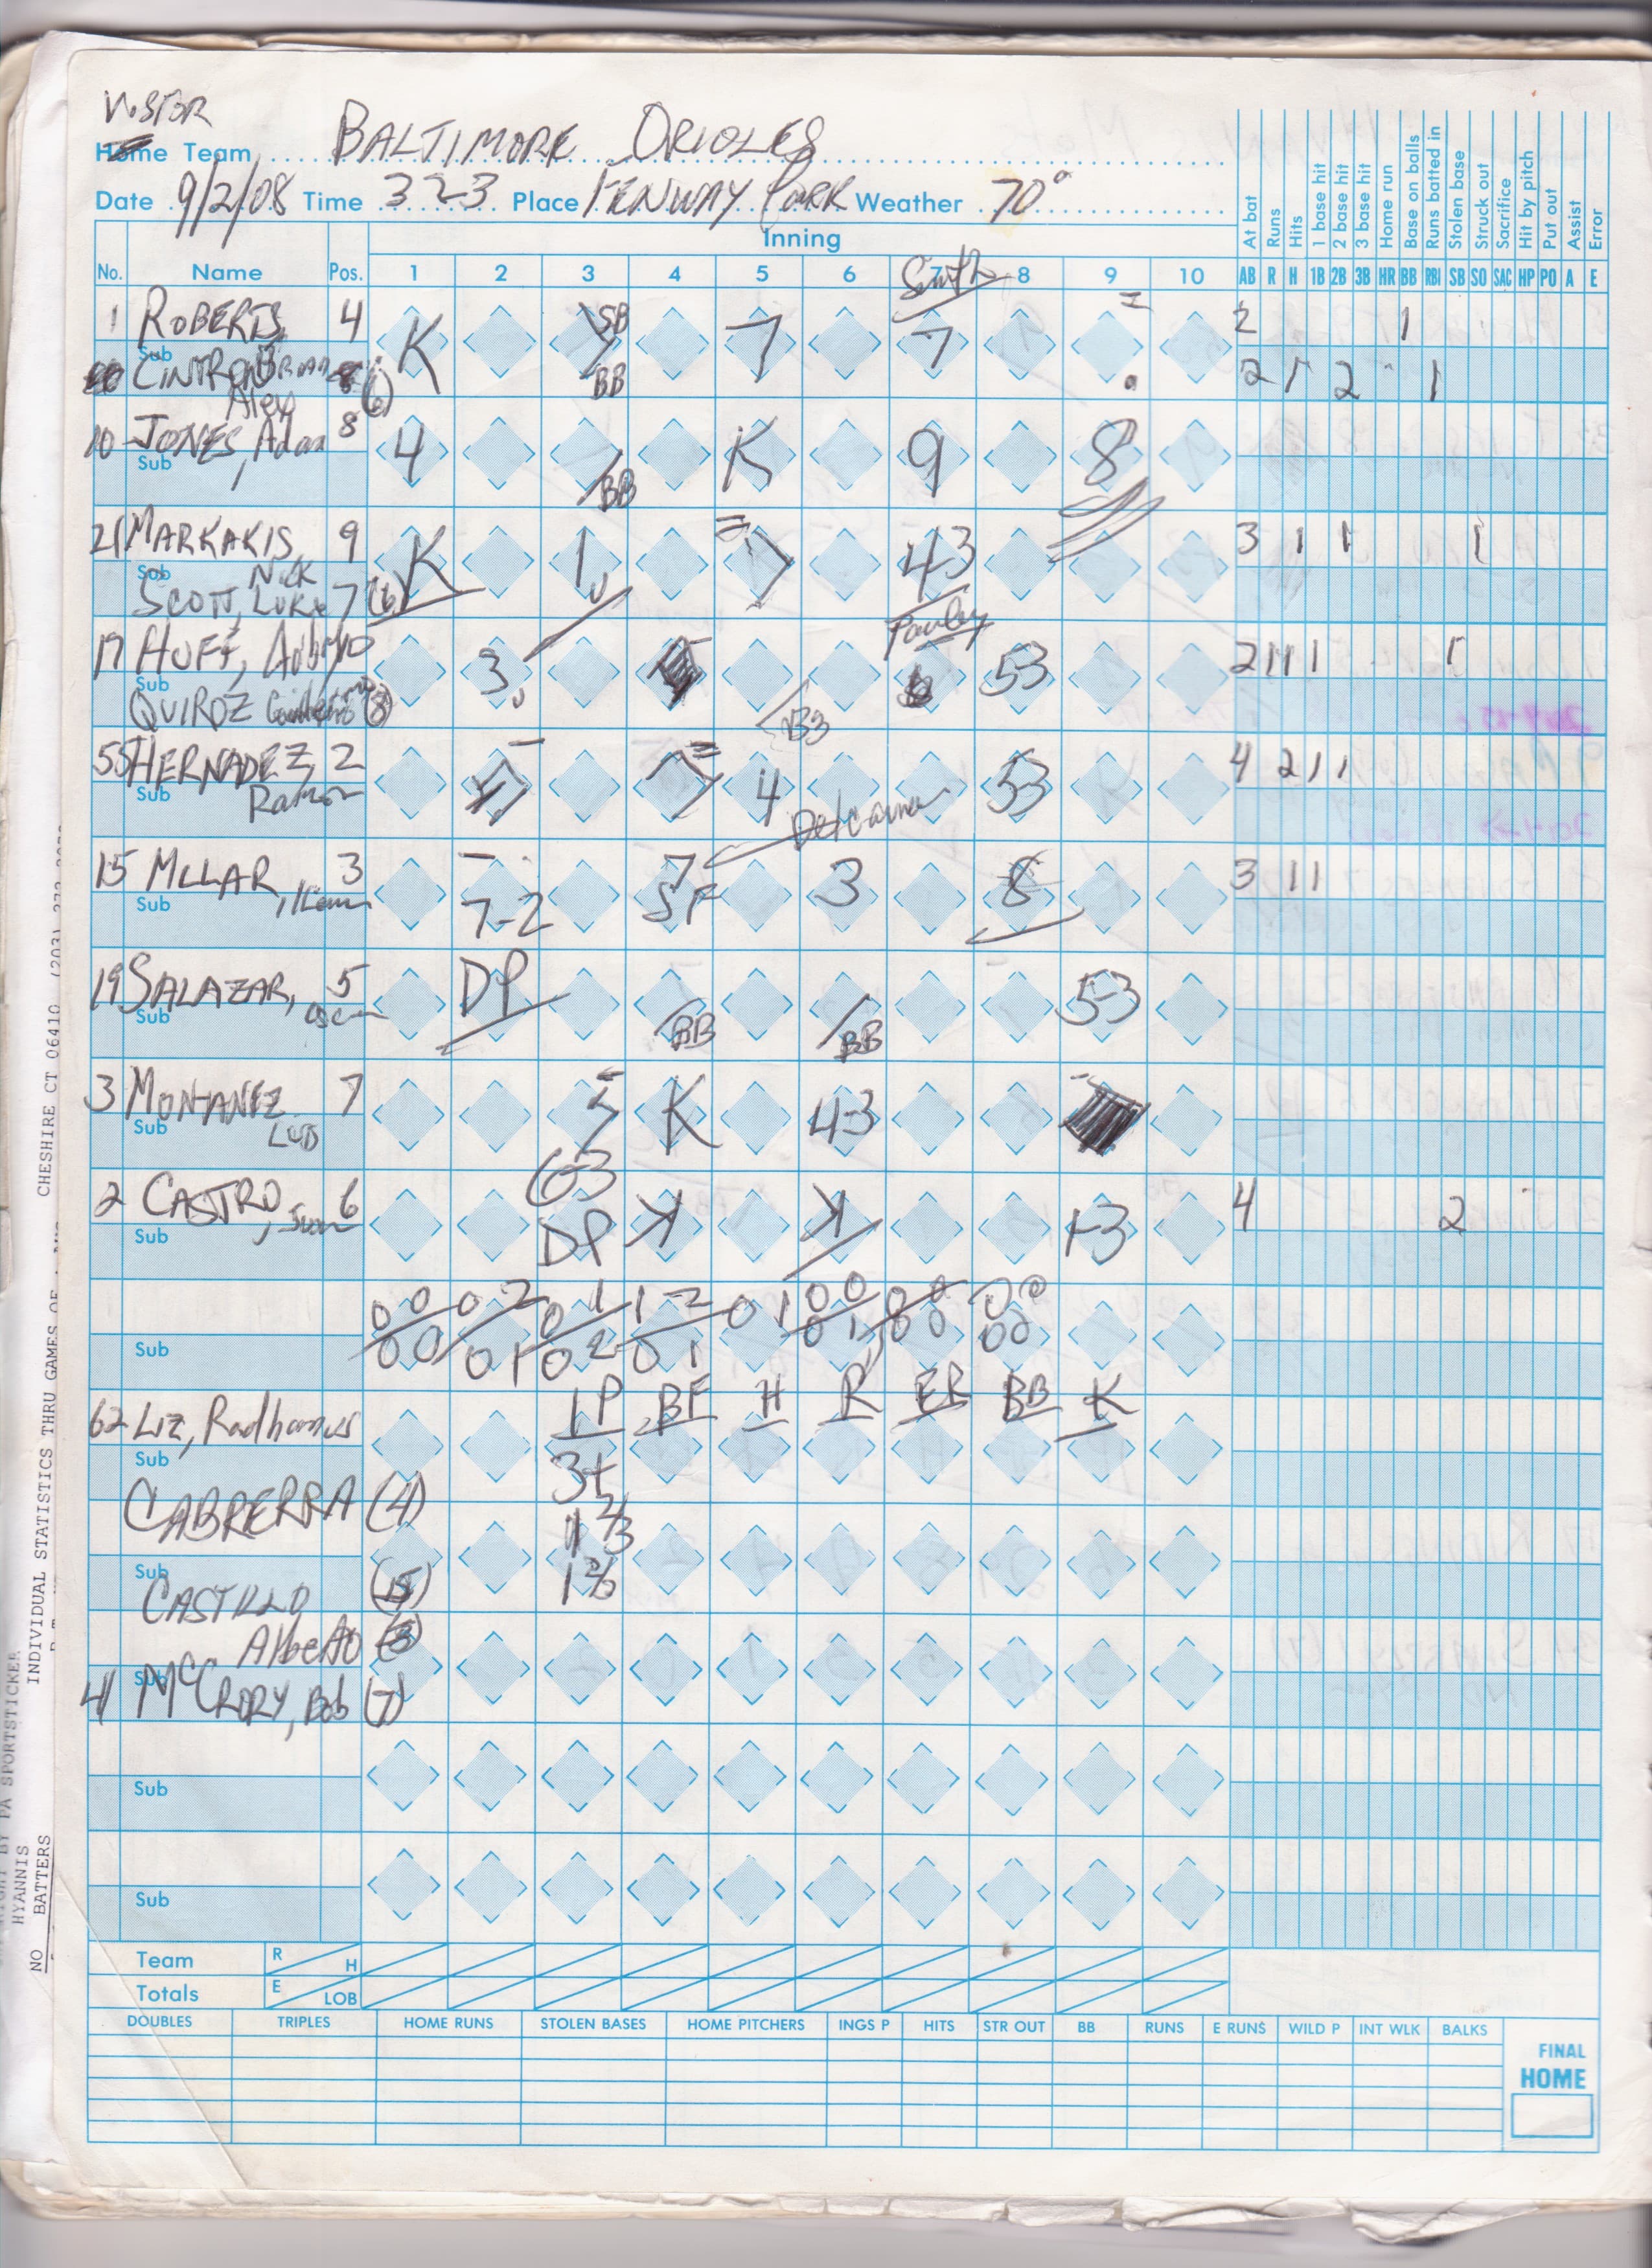 VISTOR
Home Team BALTIMORE ORIOLES
Date 9/2/08 Time 323 Place FENWAY PARK Weather 70°
Inning
No. Name Pos. 1 2 3 4 5 6 7 8 9 10
Smith
At bat
Runs
Hits
1 base hit
2 base hit
3 base hit
Home run
Base on balls
Runs batted in
Stolen base
Struck out
Sacrifice
Hit by pitch
Put out
Assist
Error
AB R H 1B 2B 3B HR BB RBI SB SO SAC HP PO A E
1 ROBERTS, 4 K SB BB 7 7 2 1
Sub
CINTRON Brian (6) 2 1 2 1
Alex
10 JONES, Adam 8 4 BB K 9 8
Sub
21 MARKAKIS, 9 K 1U 7 43 3 1 1 1
Sub Nick
SCOTT, LUKE 7 (6)
Pauley
17 HUFF, 10 3U 53 2 1 1 1 1
Sub
QUIROZ (8)
55 HERNADEZ, 2 4 53 4 2 1 1
Sub Ramon
Delcarmen
15 MLLAR, 3 7-2 7 SF 3 8 3 1 1
Sub
19 SALAZAR, 5 DP BB BB 5-3
Sub Oscar
3 MONTANEZ 7 K 4-3
Sub Luis
2 CASTRO, Juan 6 6-3 DP K K 1-3 4 2
Sub
0 0 0 2 0 1 1 2 0 1 0 0 0 0 0 0
0 0 0 1 0 2 0 1 0 1 0 0 0 0
Sub
IP BF H R ER BB K
62 Liz, Radhames 3+
Sub
CABRERRA (4) 1 2/3
Sub
CASTILLO 1 2/3
Alberto
Sub
41 McCRORY, Bob (7)
Sub
Sub
Team R H
Totals E LOB
DOUBLES TRIPLES HOME RUNS STOLEN BASES HOME PITCHERS INGS P HITS STR OUT BB RUNS E RUNS WILD P INT WLK BALKS
FINAL
HOME
CHESHIRE CT 06410
INDIVIDUAL STATISTICS THRU GAMES OF
BY PA SPORTSTICKER
HYANNIS
NO BATTERS